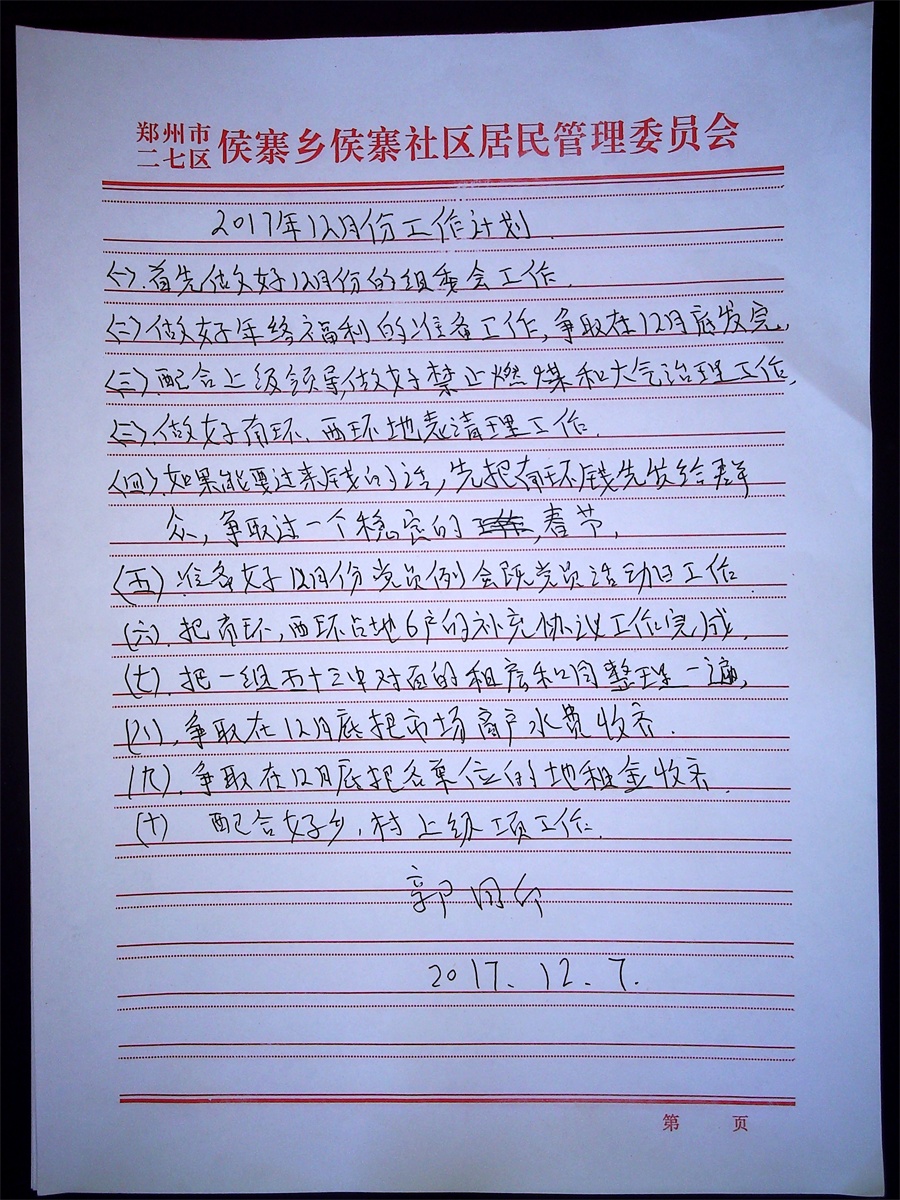 郑州市
二七区 侯寨乡侯寨社区居民管理委员会
2017年12月份工作计划
(一).首先做好12月份的组委会工作.
(二)做好年终福利的准备工作,争取在12月底发完.
(三).配合上级领导做好禁止燃煤和大气治理工作.
(三).做好南环.西环地表清理工作.
(四).如果能要过来钱的话,先把南环钱先发给群
众,争取过一个稳定的春节.
(五).准备好12月份党员例会既党员活动日工作
(六).把南环,西环占地6户的补充协议工作完成.
(七).把一组五十三中对面的租房合同整理一遍,
(八).争取在12月底把市场商户水费收齐.
(九).争取在12月底把各单位的地租金收齐.
(十) 配合好乡,村上级工作.
郭
2017.12.7.
第 页